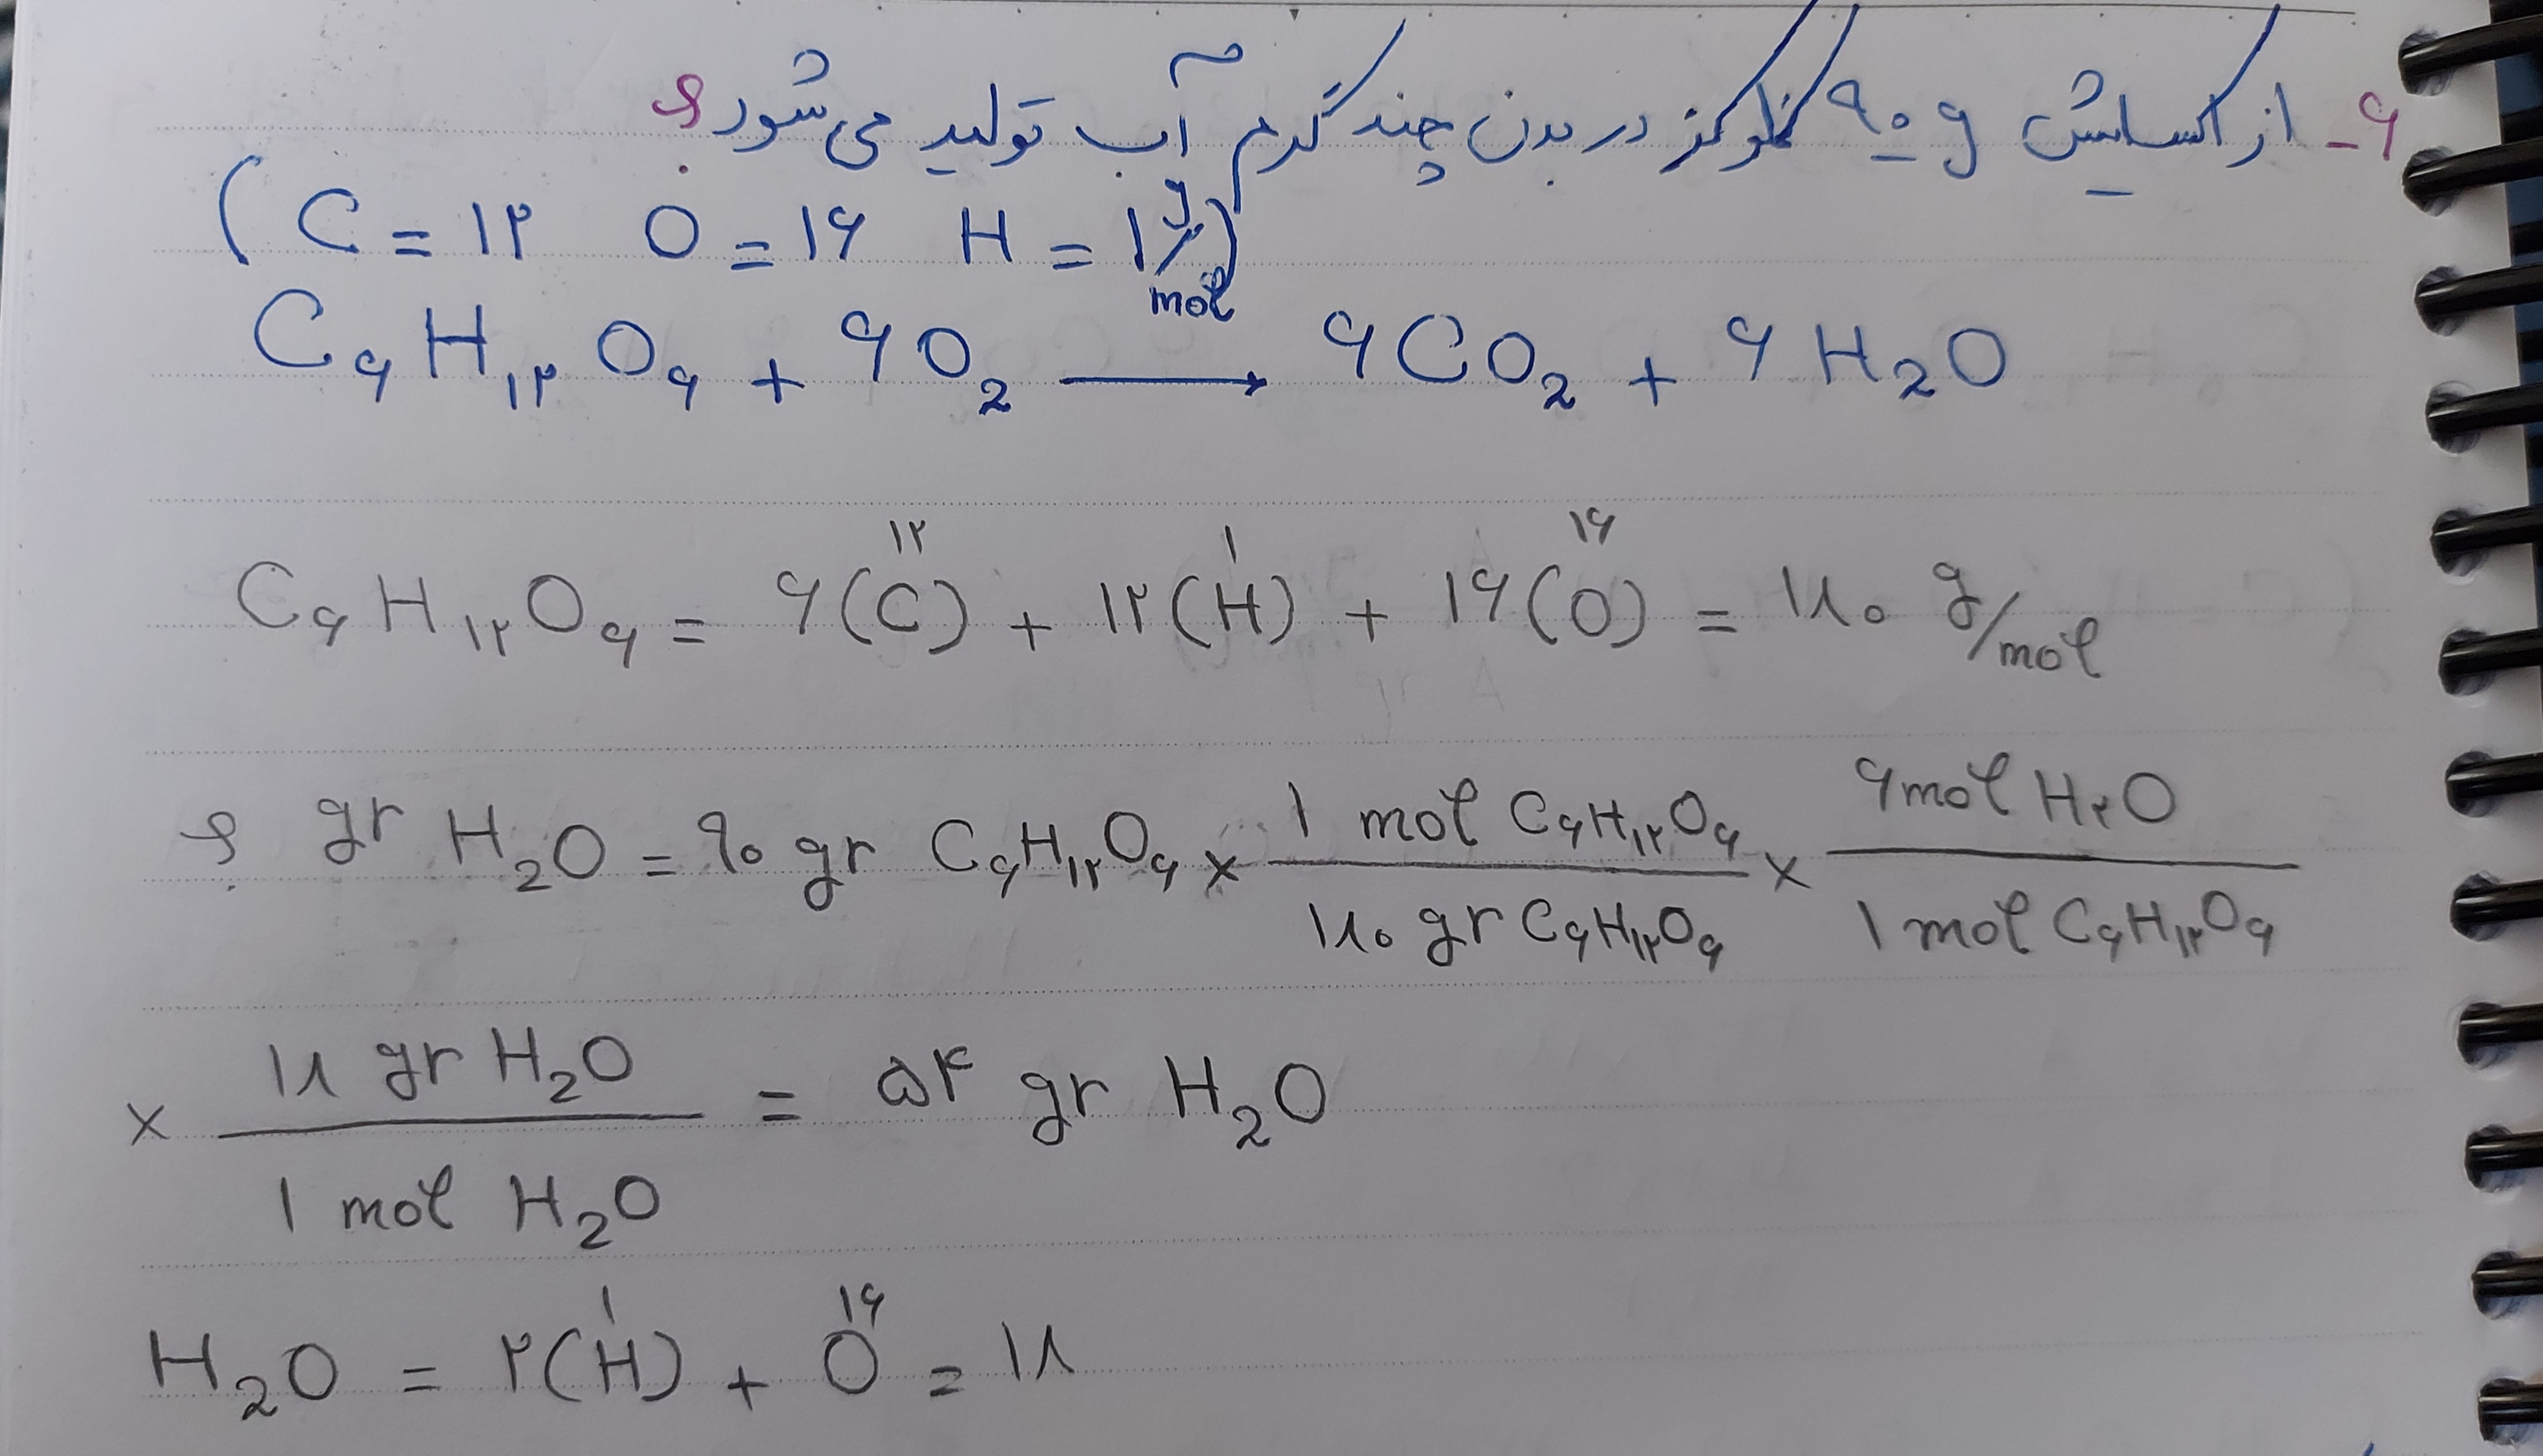 ۶- از اکسایش ۹۰ g گلوکز در بدن چند گرم آب تولید می‌شود؟
(C = ۱۲ O = ۱۶ H = ۱ g/mol)
C۶H۱۲O۶ + ۶O2 → ۶CO2 + ۶H2O
C۶H۱۲O۶ = ۶(C)۱۲ + ۱۲(H)۱ + ۱۶(O)۱۶ = ۱۸۰ g/mol
؟ gr H2O = ۹۰ gr C۶H۱۲O۶ × ۱ mol C۶H۱۲O۶ / ۱۸۰ gr C۶H۱۲O۶ × ۶mol H۲O / ۱ mol C۶H۱۲O۶
× ۱۸ gr H2O / ۱ mol H2O = ۵۴ gr H2O
H2O = ۲(H)۱ + O۱۶ = ۱۸